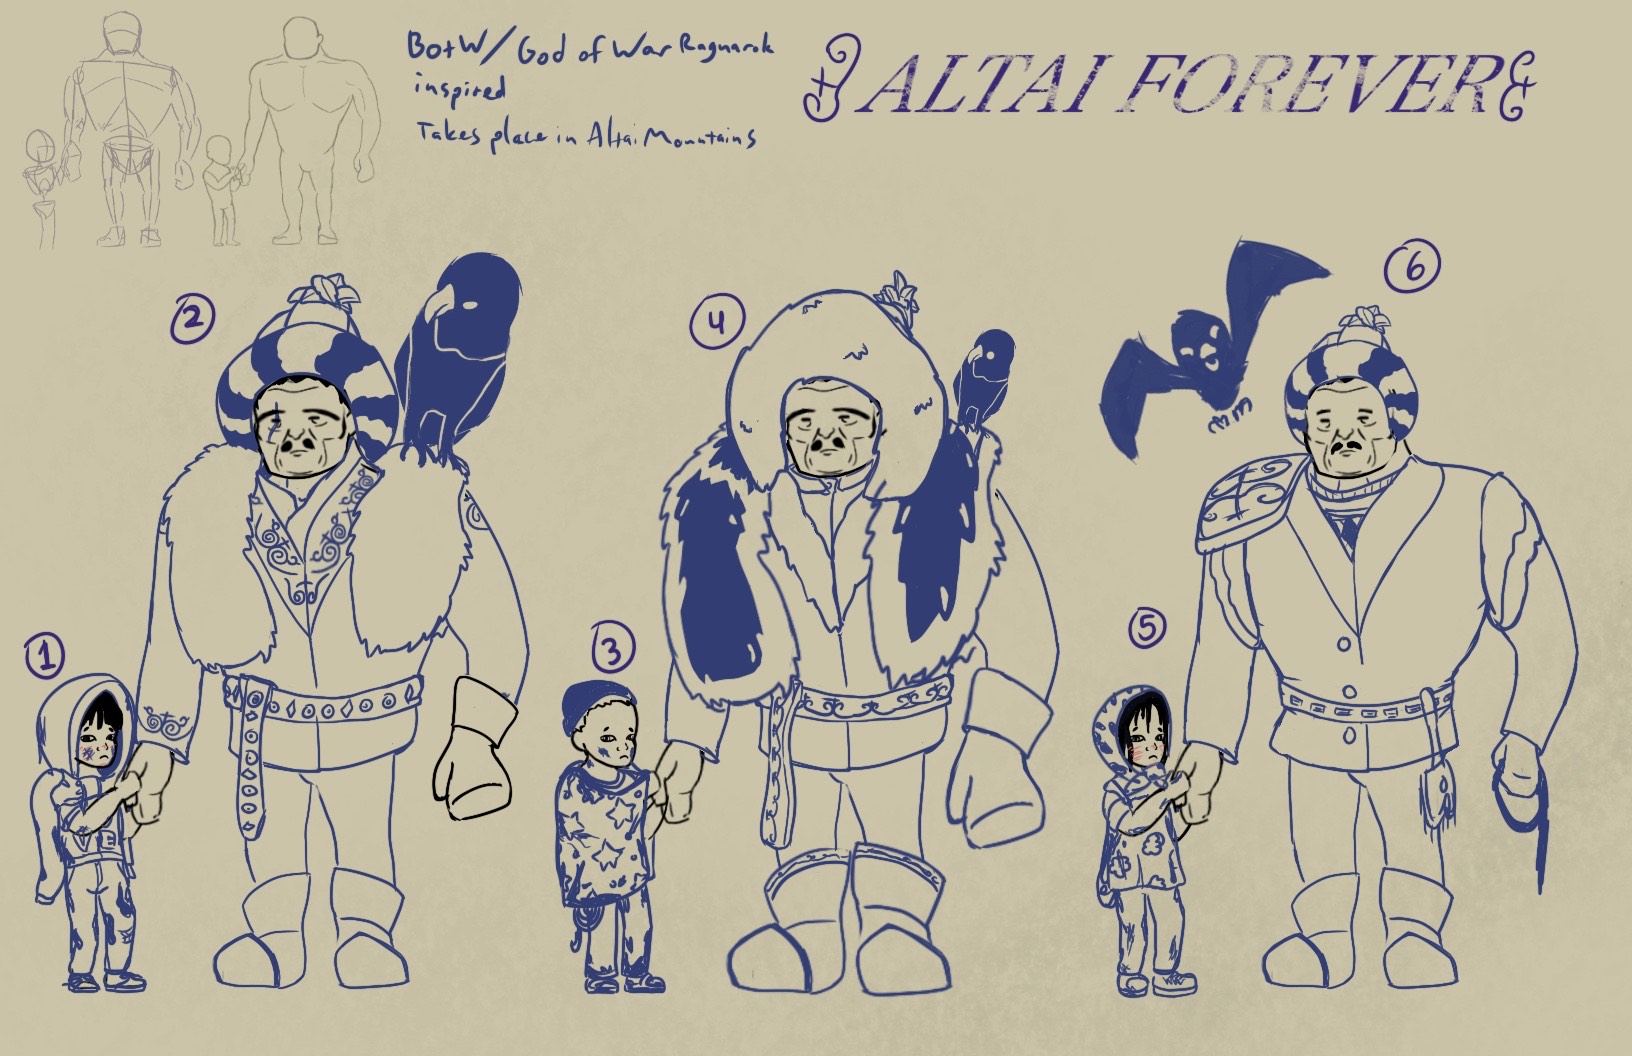 BotW/God of War Ragnarok
inspired
Takes place in Altai Mountains
ALTAI FOREVER
2
4
6
1
3
5